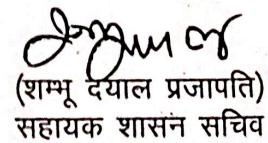 (शम्भू दयाल प्रजापति)
सहायक शासन सचिव